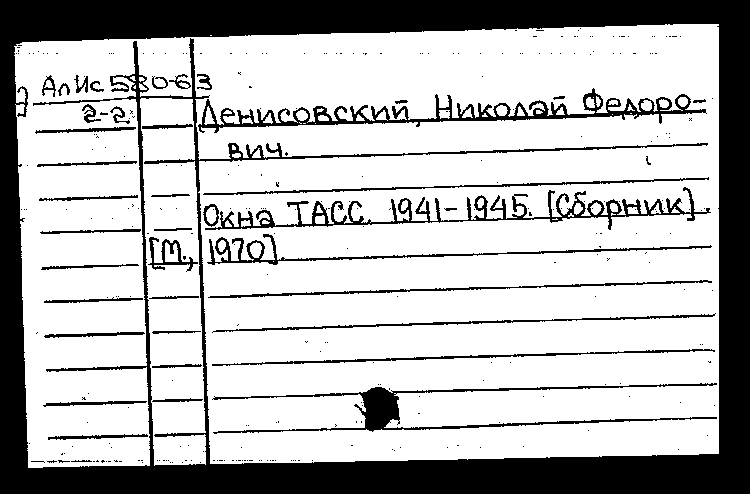 АлИс 580-63
2-2
Денисовский, Николай Федоро-
вич.
Окна ТАСС. 1941-1945. [Сборник].
[М., 1970].